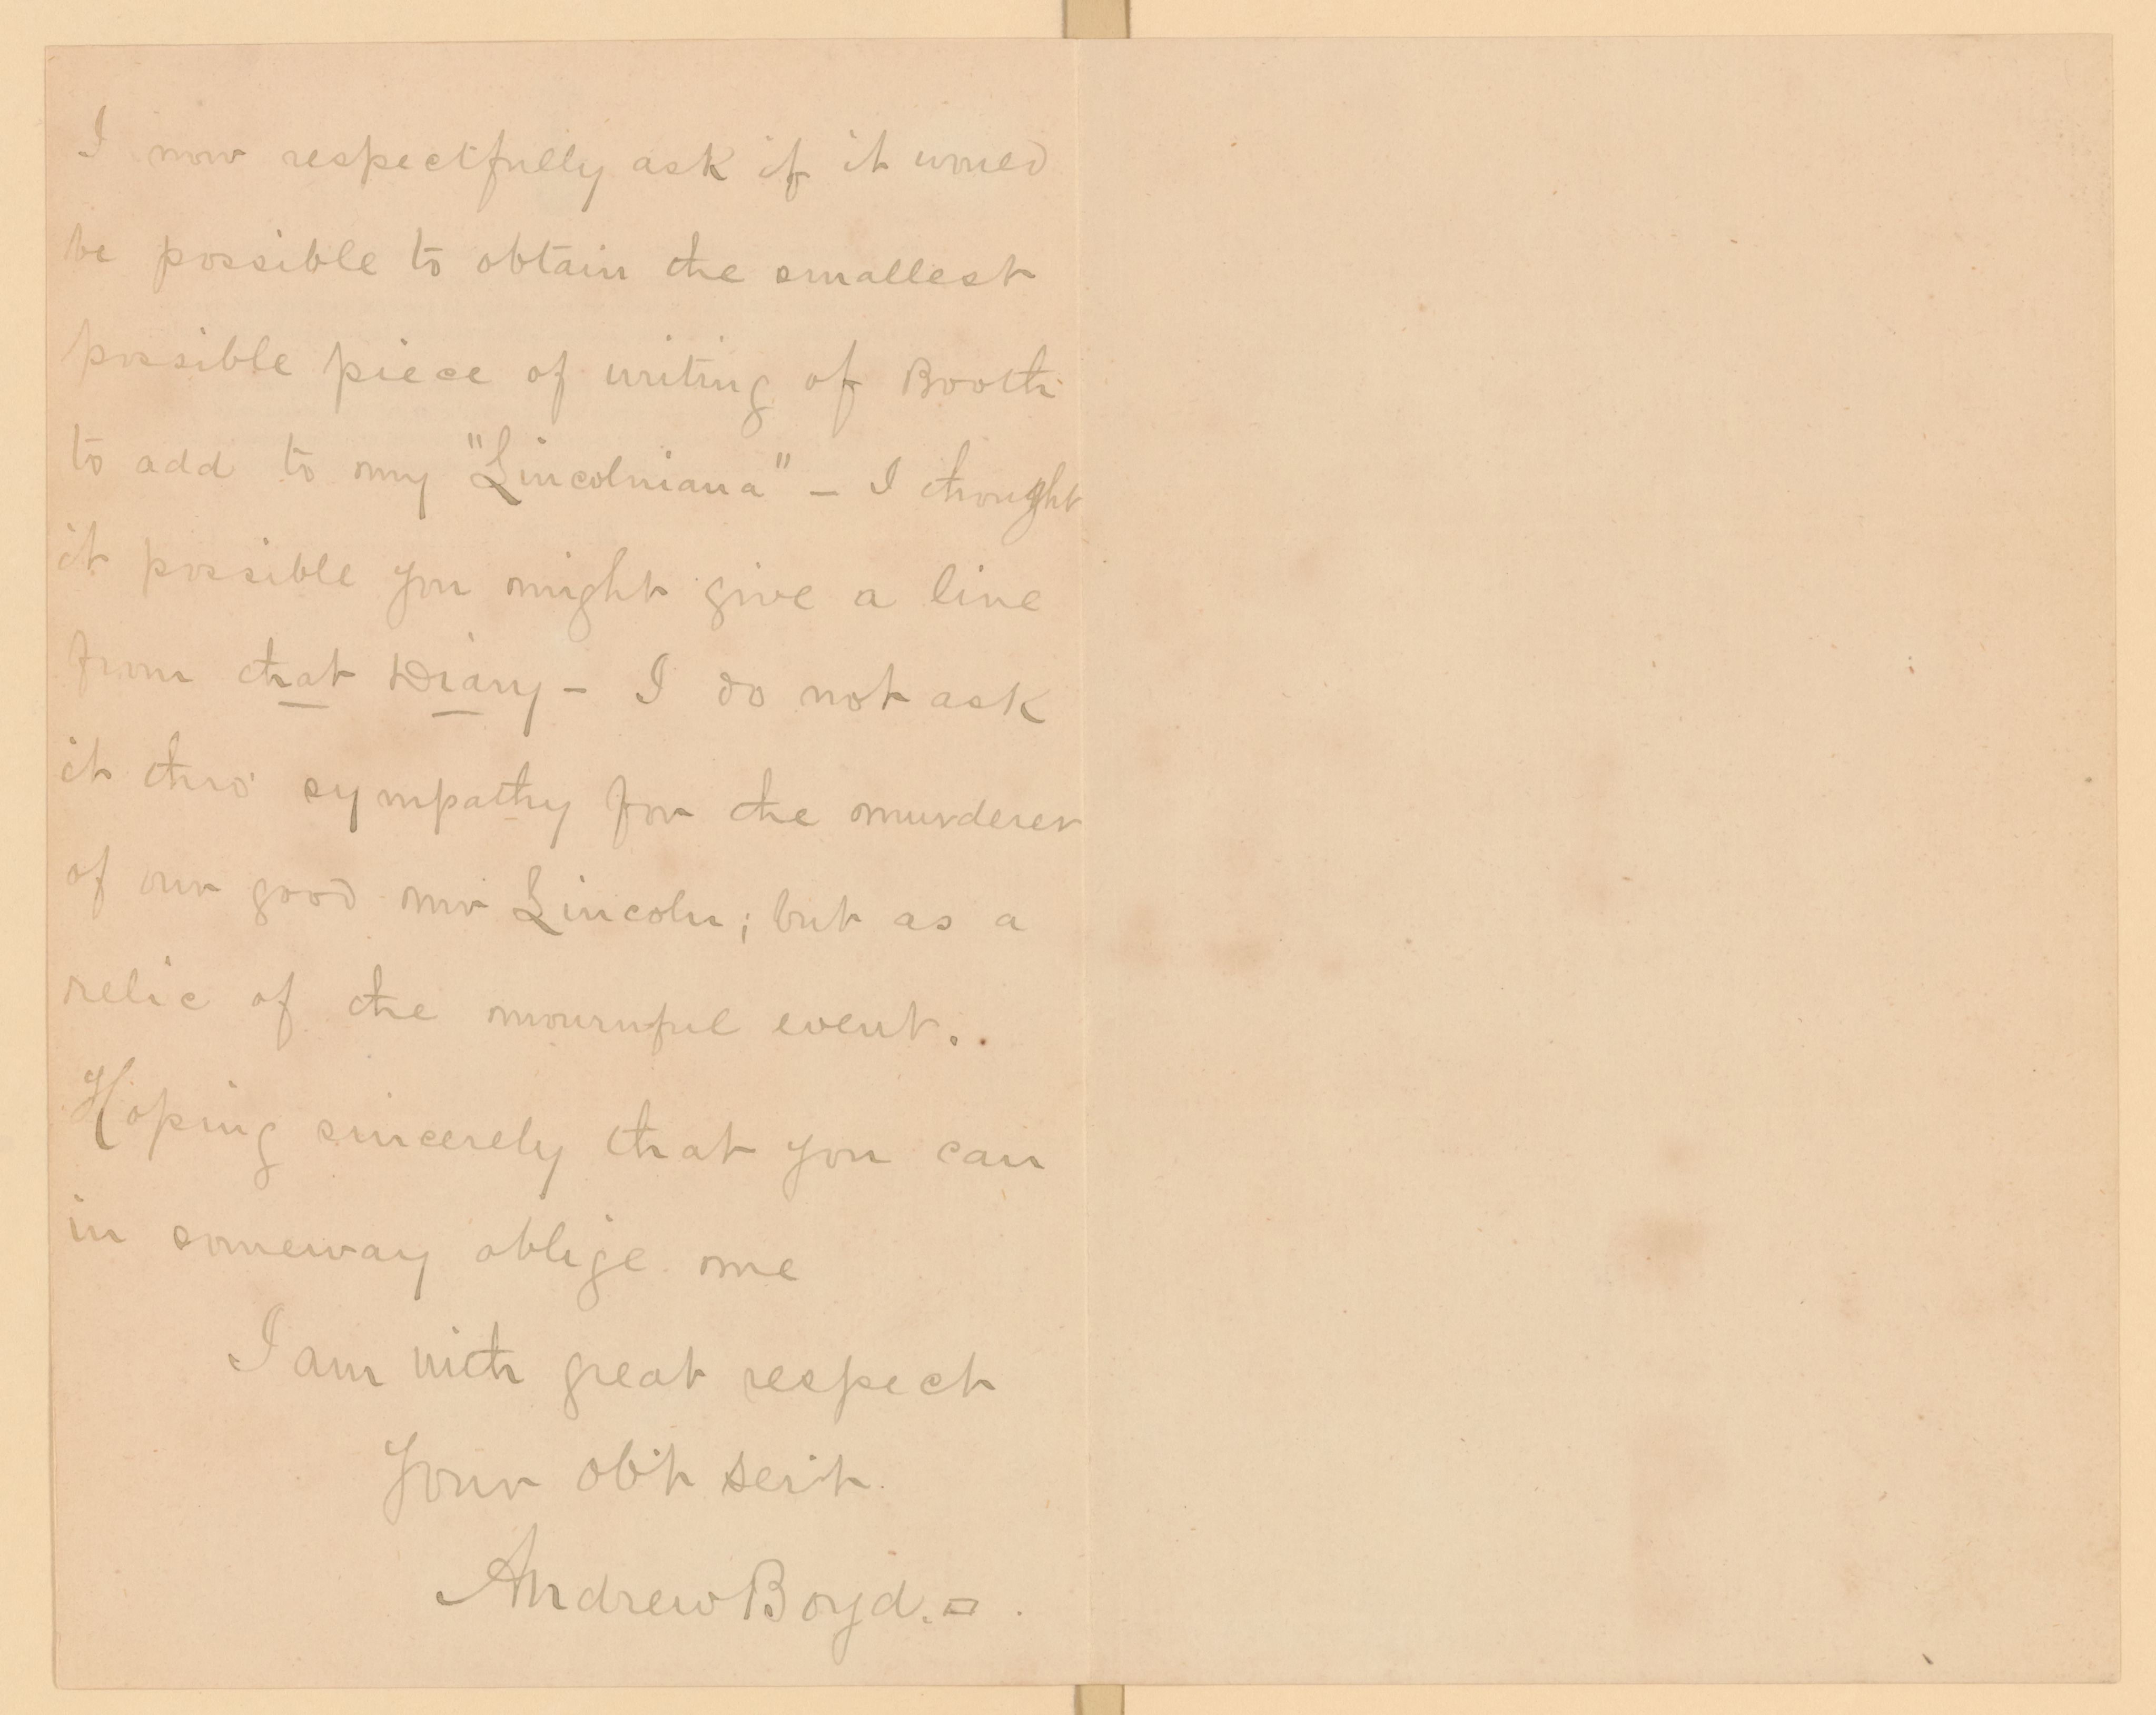 I now respectfully ask if it would
be possible to obtain the smallest
possible piece of writing of Booth
to add to my "Lincolniana" - I thought
it possible you might give a line
from that Diary - I do not ask
it thro' sympathy for the murderer
of our good Mr Lincoln; but as a
relic of the mournful event.
Hoping sincerely that you can
in someway oblige me
I am with great respect
Your ob't serv't
Andrew Boyd.